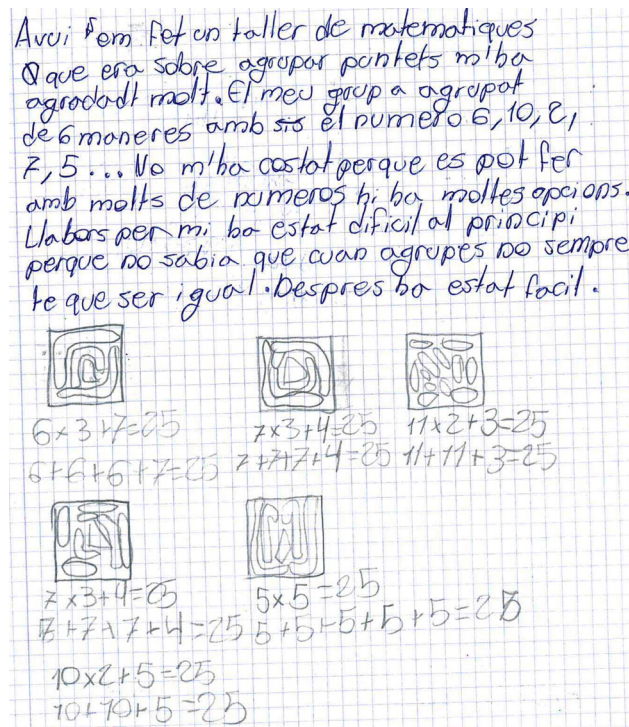 Avui em fet un taller de matematiques
que era sobre agrupar puntets m'ha
agradadt molt. El meu grup a agrupat
de 6 maneres amb el numero 6, 10, 2,
7, 5... No m'ha costat perque es pot fer
amb molts de numeros hi ha moltes opcions.
Llabors per mi ha estat dificil al principi
perque no sabia que cuan agrupes no sempre
te que ser igual. Despres ha estat facil.
6x3+7=25 7x3+4=25 11x2+3=25
6+6+6+7=25 7+7+7+4=25 11+11+3=25
7x3+4=25 5x5=25
7+7+7+4=25 5+5+5+5+5=25
10x2+5=25
10+10+5=25